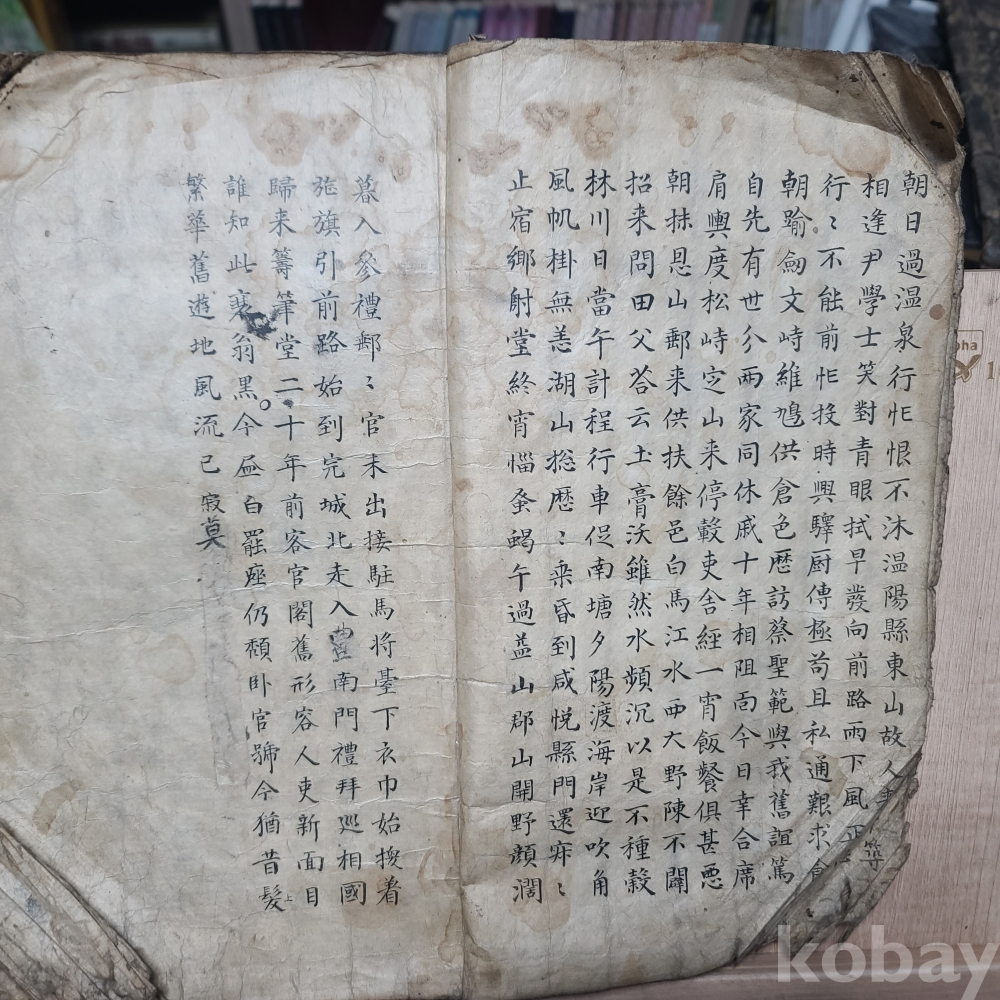 朝日過溫泉行忙恨不沐溫陽縣東山故人
相逢尹學士笑對靑眼拭早發向前路雨下風
行〻不能前忙投時興驛厨傳極苟且私通艱求食
朝踰劒文峙維鳩供倉色歷訪蔡聖範與我舊誼篤
自先有世分兩家同休戚十年相阻而今日幸合席
肩輿度松峙定山來停轂吏舍經一宵飯餐俱甚惡
朝抹恩山郵來供扶餘邑白馬江水西大野陳不闢
招來問田父荅云土膏沃雖然水頻沉以是不種穀
林川日當午計程行車促南塘夕陽渡海岸迎吹角
風帆掛無恙湖山捴歷〻乘昏到咸悅縣門還寂〻
止宿鄕射堂終宵惱蚤蝎午過益山郡山開野頗濶
暮入參禮郵〻官未出接駐馬將臺下衣巾始換着
旌旗引前路始到完城北走入豊南門禮拜巡相國
歸來籌筆堂二十年前客官閣舊形容人吏新面目
誰知此衰翁黑今盃白罷座仍頹卧官號今猶昔髮
繁華舊遊地風流已寂莫
kobay